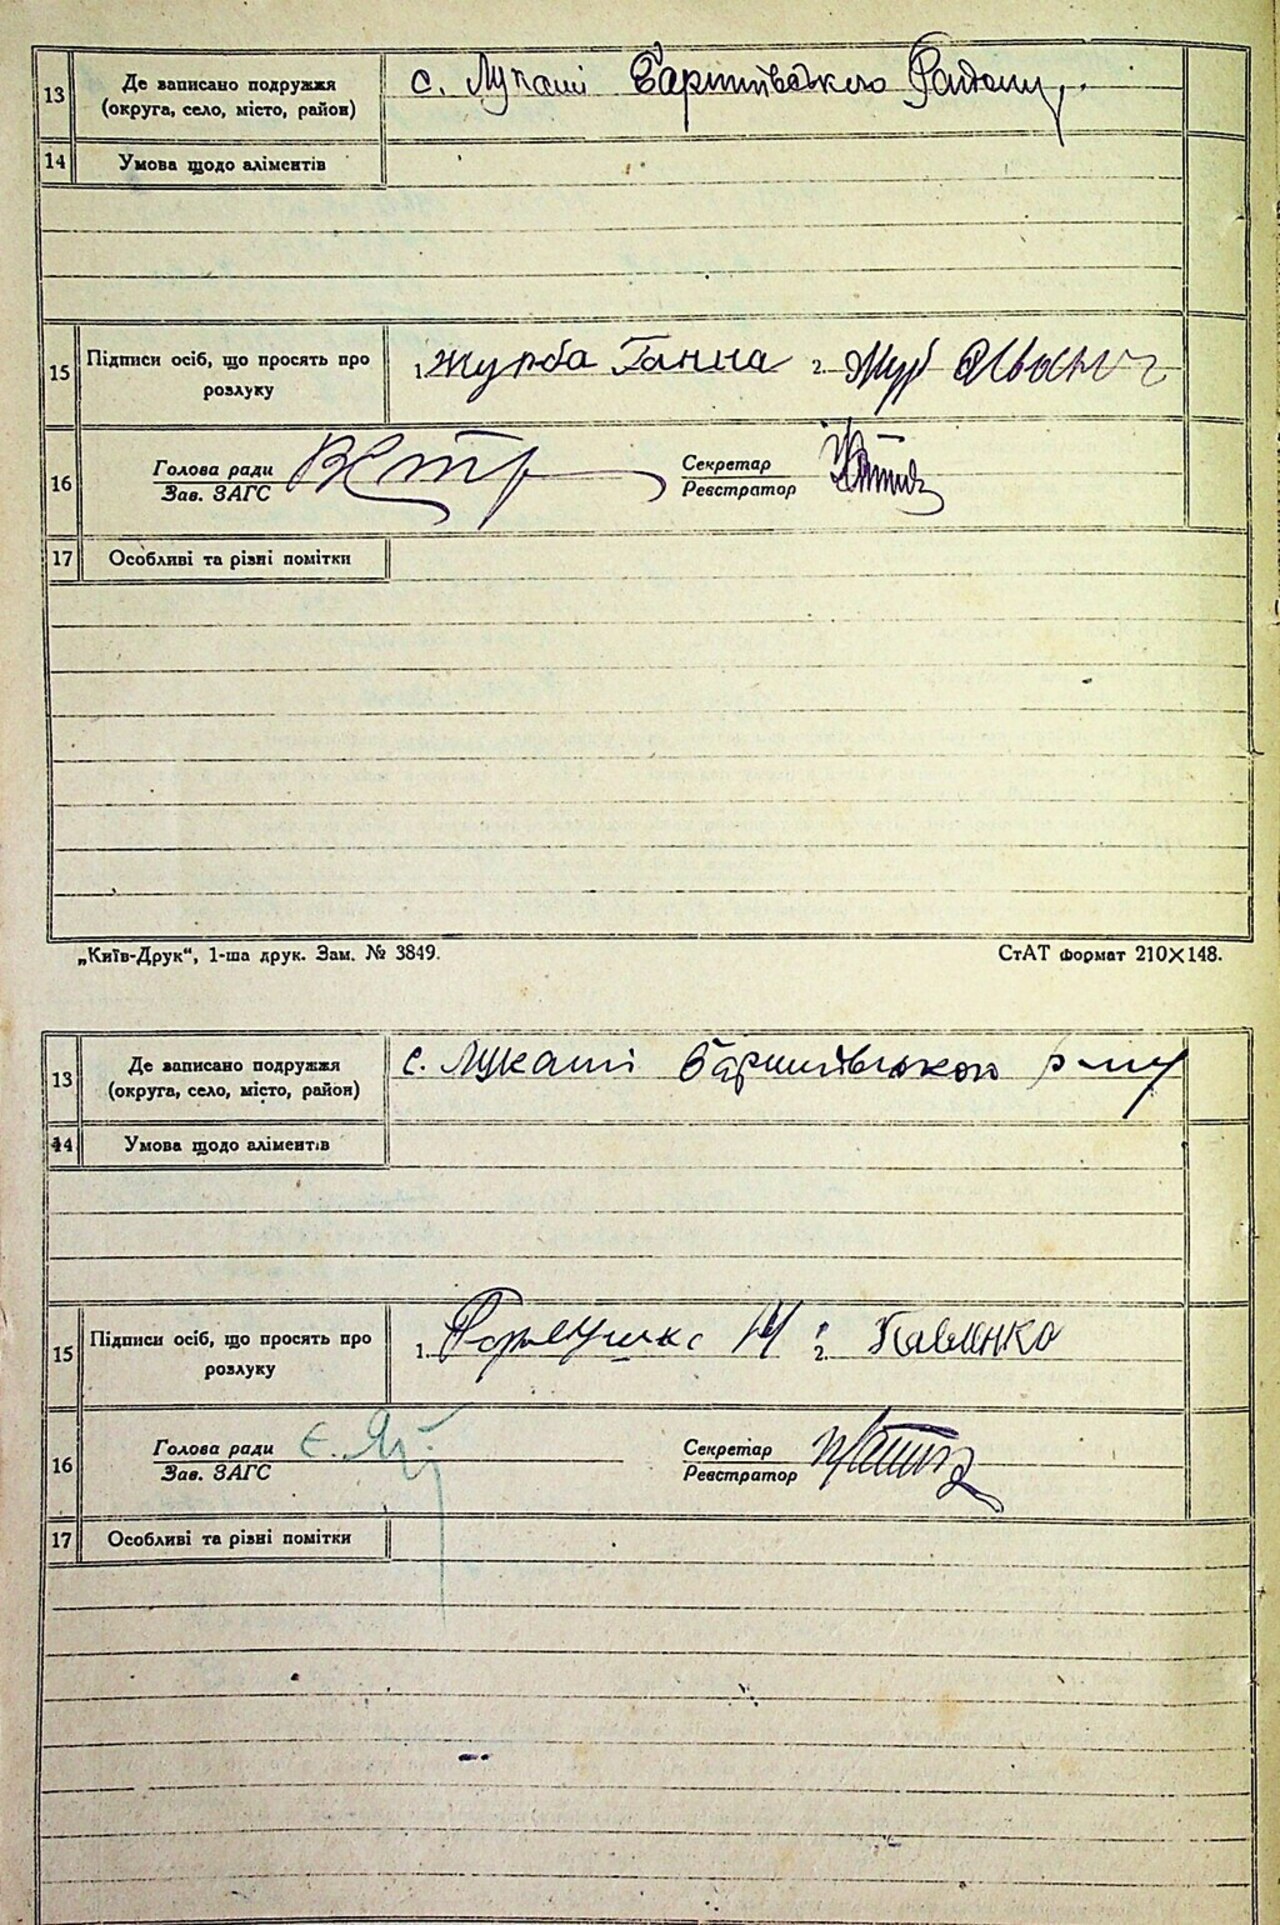 13 Де записано подружжя
(округа, село, місто, район)
с. Лукаші Баришівського Району
14 Умова щодо аліментів
15 Підписи осіб, що просять про
розлуку
1. Журба Ганна 2. Жур
16 Голова ради
Зав. ЗАГС
Секретар
Реєстратор
17 Особливі та різні помітки
„Київ-Друк“, 1-ша друк. Зам. № 3849. СтАТ формат 210×148.
13 Де записано подружжя
(округа, село, місто, район)
с. Лукаші Баришівського р-ну
14 Умова щодо аліментів
15 Підписи осіб, що просять про
розлуку
1. 2. Павленко
16 Голова ради
Зав. ЗАГС
Секретар
Реєстратор
17 Особливі та різні помітки